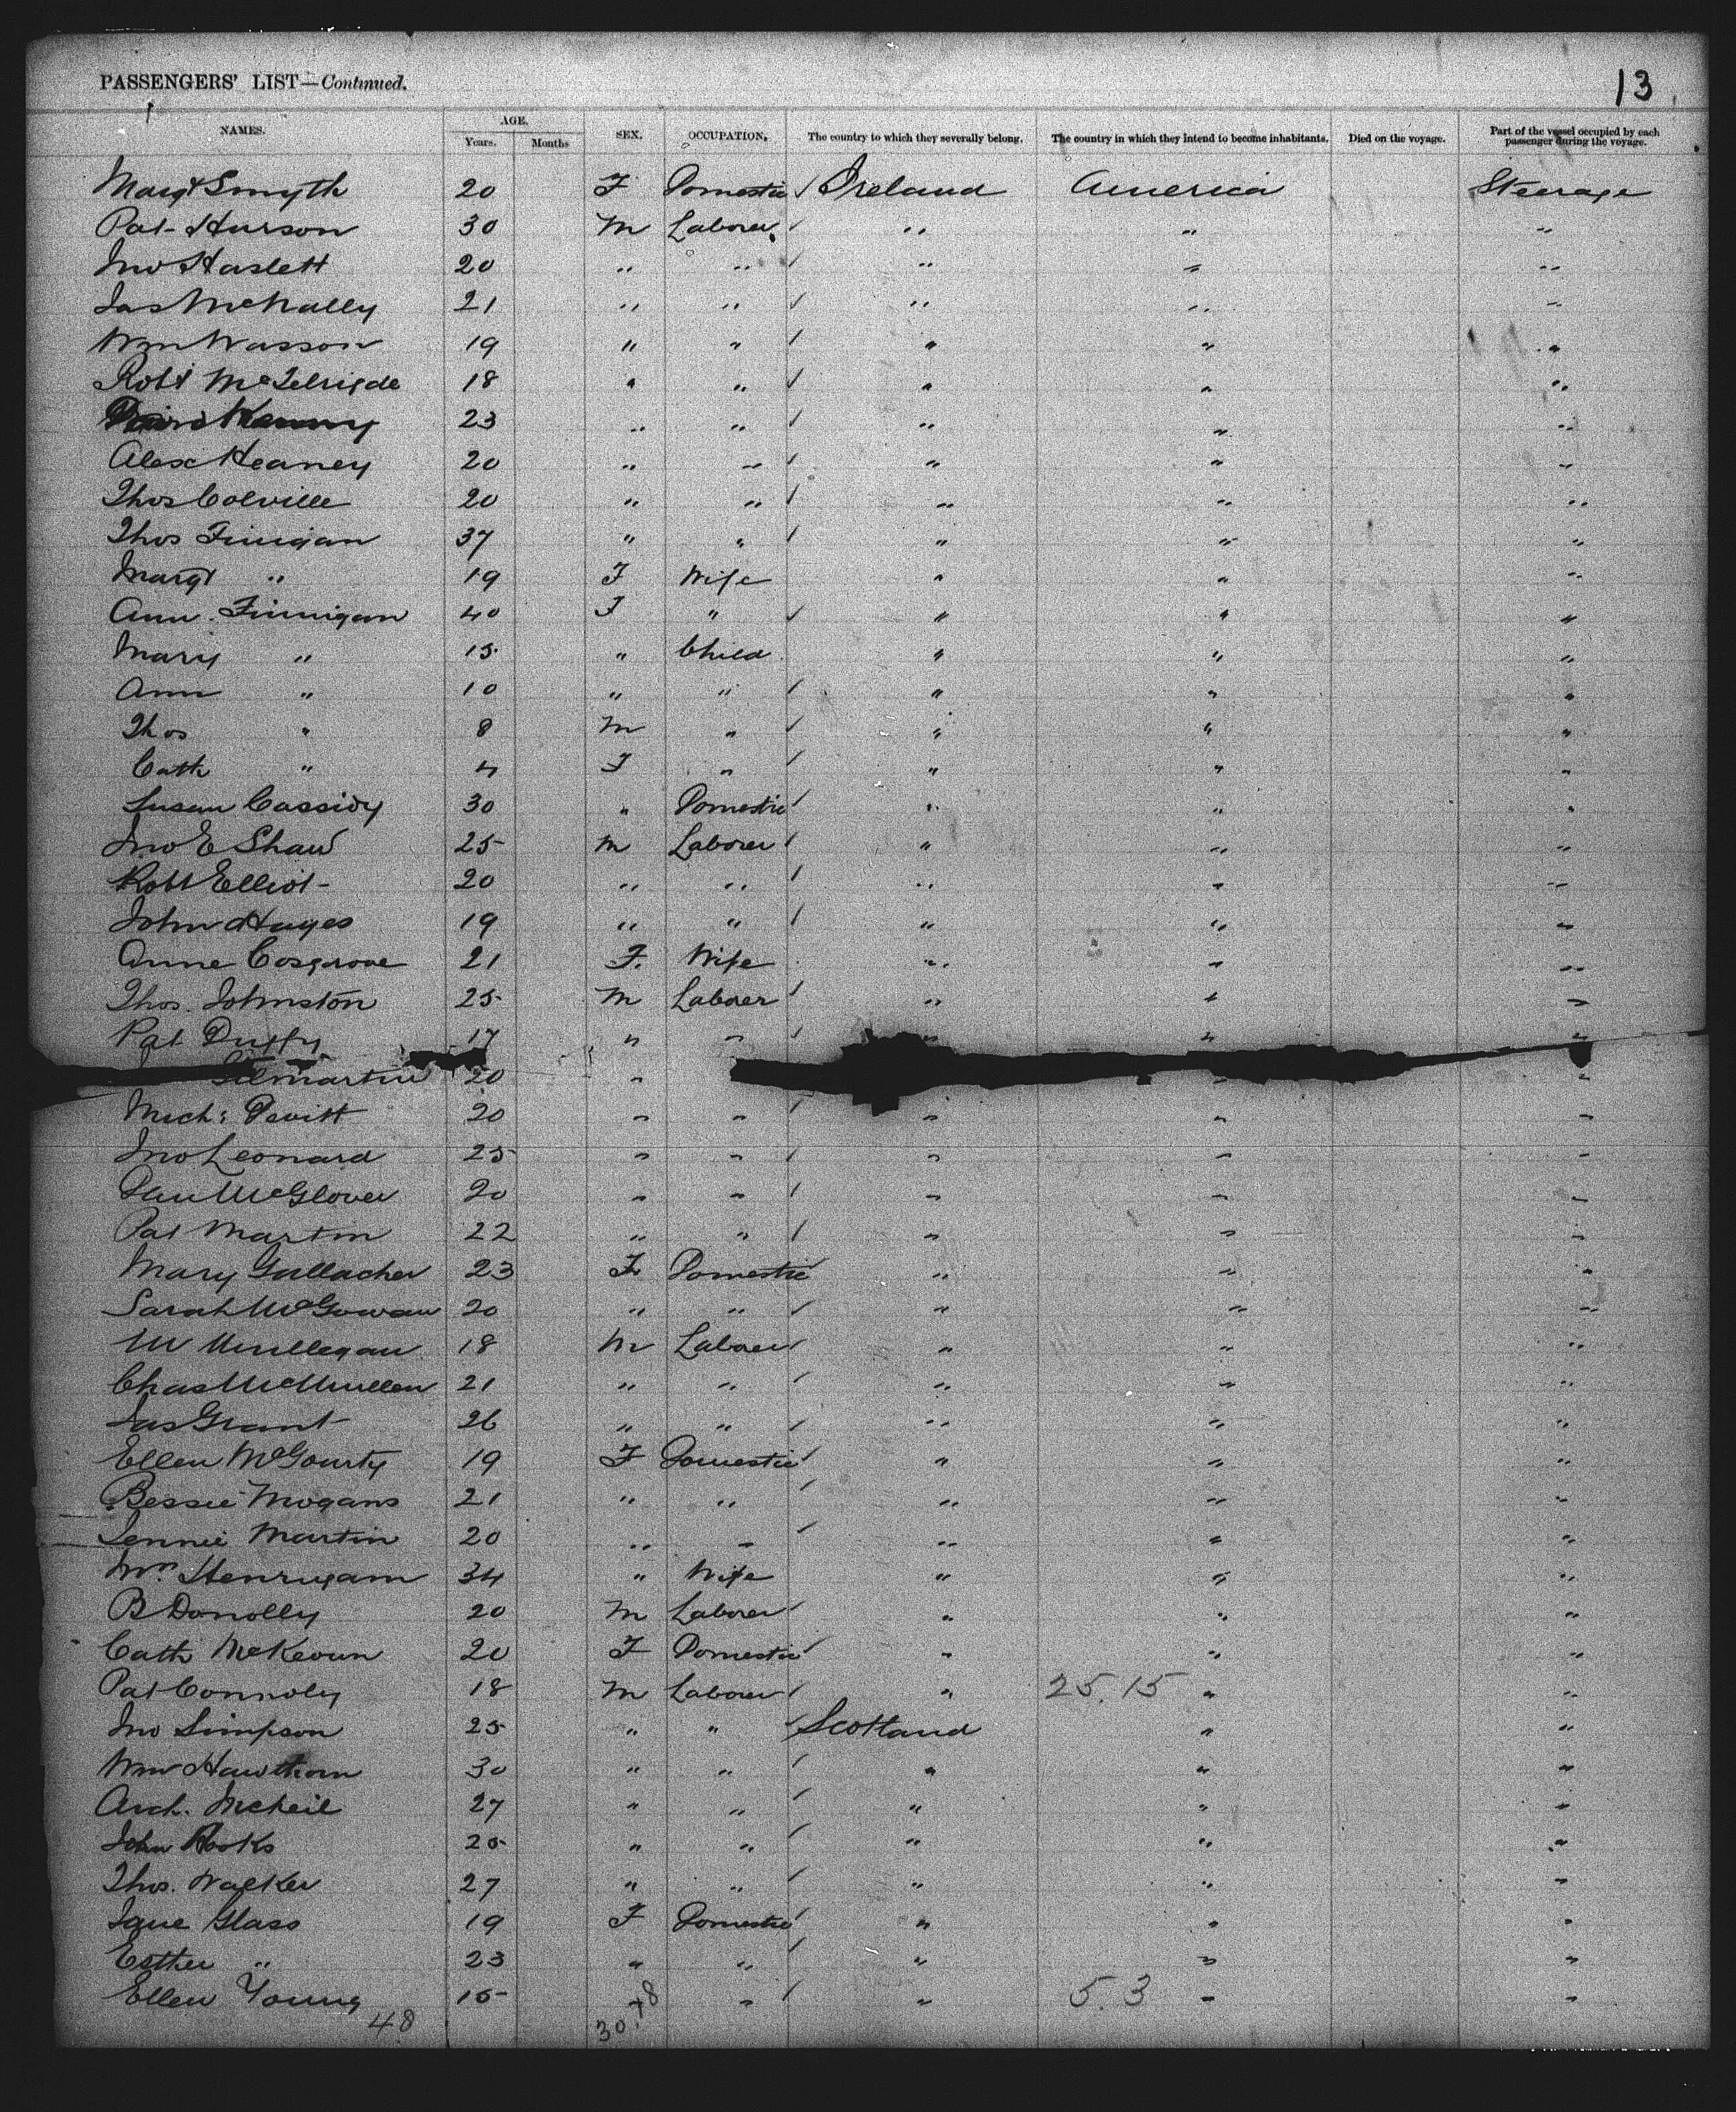 PASSENGERS' LIST—Continued. 13
NAMES. AGE. Years. Months SEX. OCCUPATION. The country to which they severally belong. The country in which they intend to become inhabitants. Died on the voyage. Part of the vessel occupied by each passenger during the voyage.
Margt Smyth 20 F Domestic Ireland America Steerage
Pat Hurson 30 M Laborer " " "
Jno Haslett 20 " " " " "
Jas McNally 21 " " " " "
Wm Wasson 19 " " " " "
Robt 18 " " " " "
Kenny 23 " " " " "
Alex Heaney 20 " " " " "
Thos Colville 20 " " " " "
Thos Finigan 37 " " " " "
Margt " 19 F Wife " " "
Ann. Finnigan 40 F " " " "
Mary " 15 " Child " " "
Ann " 10 " " " " "
Thos " 8 M " " " "
Cath " 4 F " " " "
Susan Cassidy 30 " Domestic " " "
Jno E Shaw 25 M Laborer " " "
Robt Elliot 20 " " " " "
John Hayes 19 " " " " "
Anne Cosgrove 21 F. Wife " " "
Thos. Johnston 25 M Laborer " " "
Pat Duffy 17 " " " " "
Gilmartin 20 " " "
Mich: Devitt 20 " " " " "
Jno Leonard 25 " " " " "
Dan McGlover 20 " " " " "
Pat Martin 22 " " " " "
Mary Gallacher 23 F Domestic " " "
Sarah McGowan 20 " " " " "
M Mullegan 18 M Laborer " " "
Chas McMullen 21 " " " " "
Jas Grant 26 " " " " "
Ellen McGourty 19 F Domestic " " "
Bessie Mogans 21 " " " " "
Jennie Martin 20 " " " " "
Henrigam 34 " Wife " " "
B Donolly 20 M Laborer " " "
Cath McKeown 20 F Domestic " " "
Pat Connoly 18 M Laborer " 25.15 " "
Jno Simpson 25 " " Scotland " "
Wm Hawthorn 30 " " " " "
Arch. McNeil 27 " " " " "
John Rooks 25 " " " " "
Thos. Walker 27 " " " " "
Jane Glass 19 F Domestic " " "
Esther " 23 " " " " "
Ellen Young 15 " " 5.3 " "
48 30.18